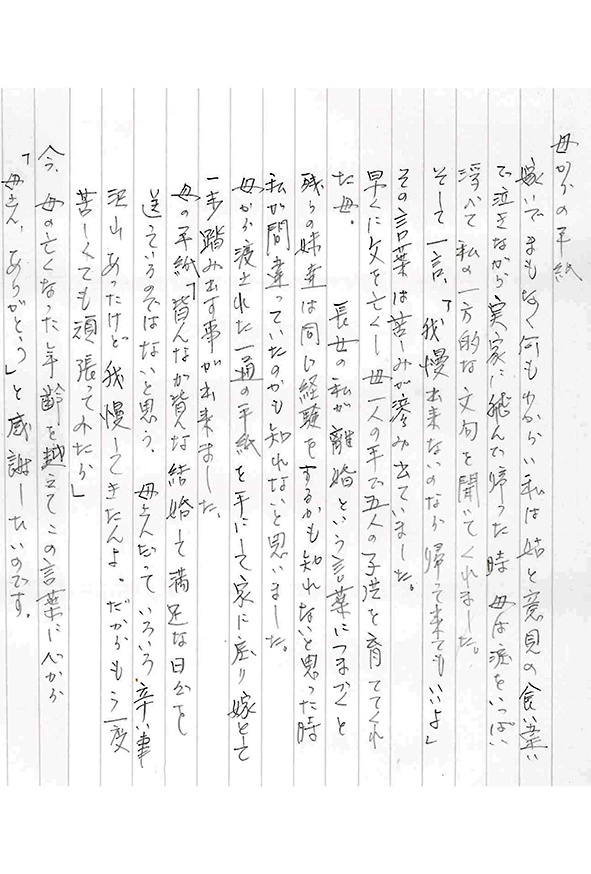 母からの手紙
嫁いでまもなく何もわからい私は姑と意見の食い違い
で泣きながら実家に飛んで帰った時 母は涙をいっぱい
浮べて私の一方的な文句を聞いてくれました。
そして一言、「我慢出来ないのなら帰って来てもいいよ」
その言葉は苦しみが滲み出ていました。
早くに父を亡くし母一人の手で五人の子供を育ててくれ
た母。 長女の私が離婚という言葉につまづくと
残りの妹達は同じ経験をするかも知れないと思った時
私が間違っていたのかも知れないと思いました。
母から渡された一通の手紙を手にして家に戻り嫁として
一歩踏み出す事が出来ました。
母の手紙「皆んなが皆んな結婚して満足な日々を
送っているのではないと思う。 母さんだっていろいろ辛い事
沢山あったけど我慢してきたんよ。だからもう一度
苦しくても頑張ってみたら」
今、母の亡くなった年齢を越えてこの言葉に心から
「母さん、ありがとう」と感謝したいのです。